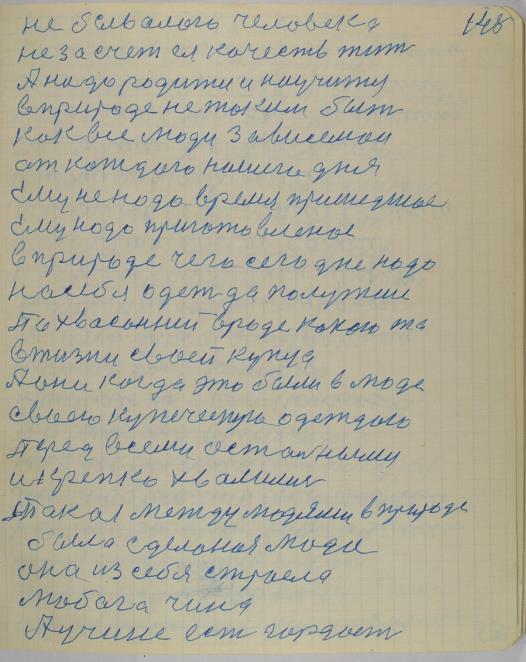 148
не бывалого человека
не за счет ея качеств жит
А надо родити и научити
в природе не таким быт
как все люди зависемои
от каждого нашего дня
Ему не надо время пришедшое
Ему надо приготовленое
в природе чего сегодне надо
на себя одежда получше
в роде какого та
в жизни своей купца
А они когда это были в моде
своею купеческую одеждою
перед всеми остальными
и крепко хвалилис
Такая между людями в природе
была сделоная моди
она из себя строела
любога чина
А у чине ест гордост